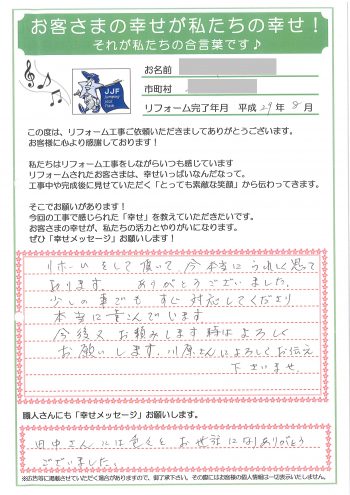 お客さまの幸せが私たちの幸せ！
それが私たちの合言葉です♪
JJF
お名前
市町村
リフォーム完了年月 平成 29 年 8 月
この度は、リフォーム工事ご依頼いただきましてありがとうございます。
お客様に心より感謝しております！
私たちはリフォーム工事をしながらいつも感じています
リフォームされたお客さまは、幸せいっぱいなんだなって。
工事中や完成後に見せていただく「とっても素敵な笑顔」から伝わってきます。
そこでお願いがあります！
今回の工事で感じられた「幸せ」を教えていただきたいです。
お客さまの幸せが、私たちの活力とやりがいになります。
ぜひ「幸せメッセージ」お願いします！
リホームをして頂いて、今本当にうれしく思って
おります。ありがとうございました。
少しの事でもすぐ対応してくださり
本当に喜んでいます
今後又お頼みします時はよろしく
お願いします。川原さんによろしくお伝え
下さいませ
職人さんにも「幸せメッセージ」お願いします。
田中さんには色々とお世話になりありがとう
ございました。
※広告等に掲載させていただく場合がありますので、御了承下さい。その際にはお客様の個人情報は一切表示いたしません。